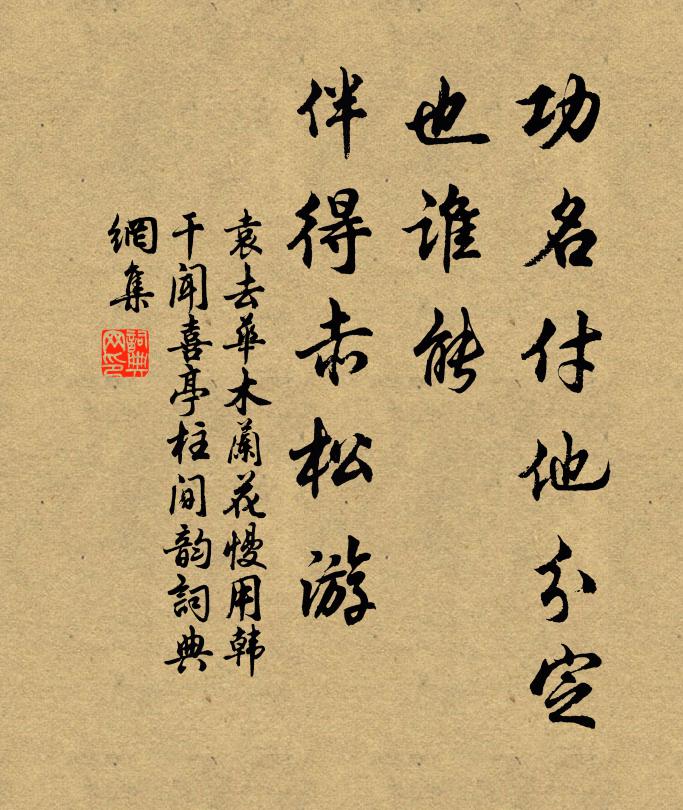 功名付他分定
也谁能
伴得赤松游
袁去華木蘭花慢用韩
干闻喜亭柱间韵詞典
網集
詞典
网印